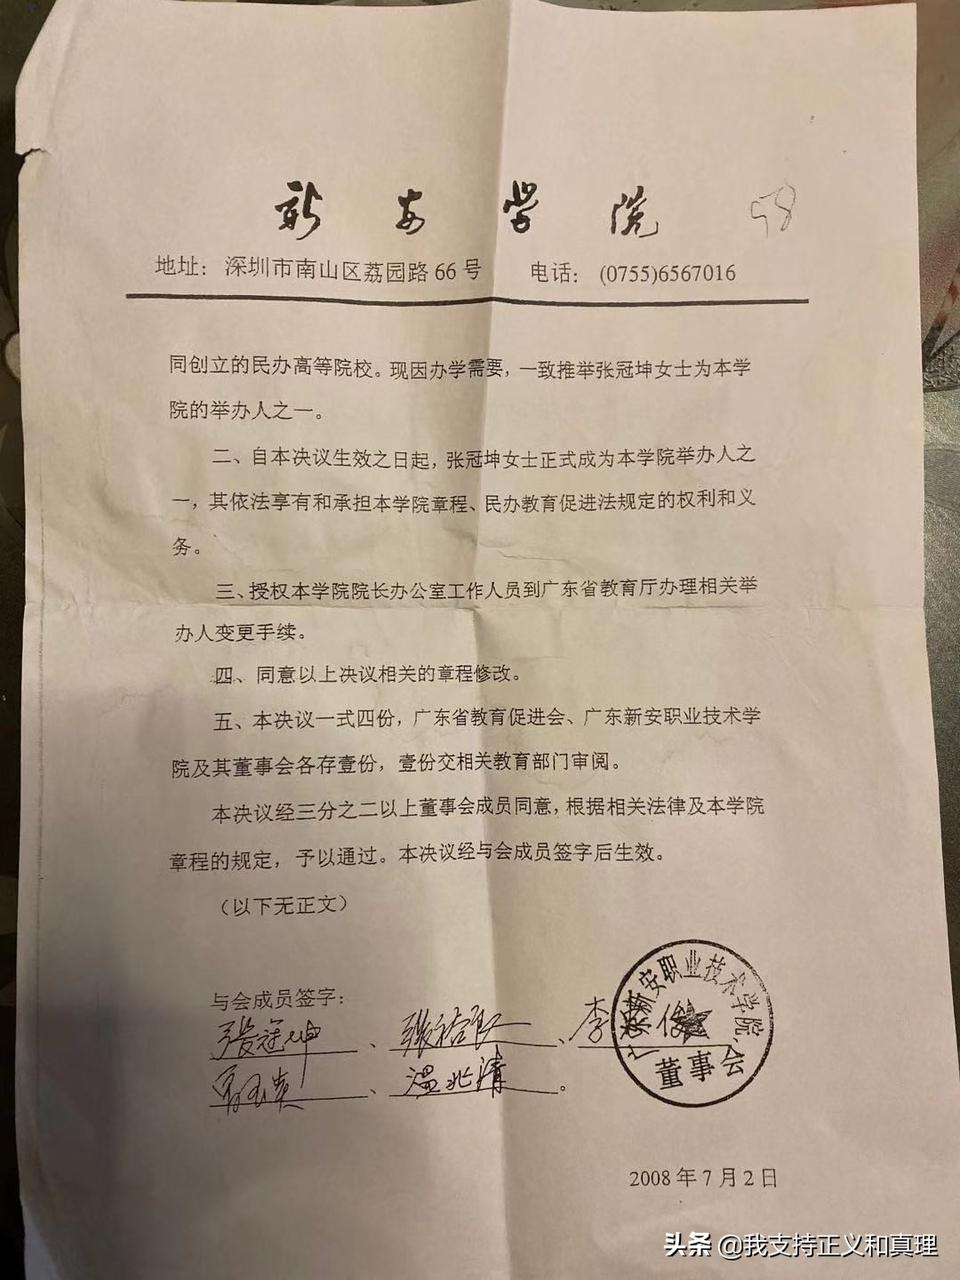 新安学院
58
地址：深圳市南山区荔园路 66 号 电话：(0755)6567016
同创立的民办高等院校。现因办学需要，一致推举张冠坤女士为本学
院的举办人之一。
二、自本决议生效之日起，张冠坤女士正式成为本学院举办人之
一，其依法享有和承担本学院章程、民办教育促进法规定的权利和义
务。
三、授权本学院院长办公室工作人员到广东省教育厅办理相关举
办人变更手续。
四、同意以上决议相关的章程修改。
五、本决议一式四份，广东省教育促进会、广东新安职业技术学
院及其董事会各存壹份，壹份交相关教育部门审阅。
本决议经三分之二以上董事会成员同意，根据相关法律及本学院
章程的规定，予以通过。本决议经与会成员签字后生效。
（以下无正文）
与会成员签字：
張冠坤、李
、温北清。
广东新安职业技术学院
董事会
2008 年 7 月 2 日
头条 @我支持正义和真理